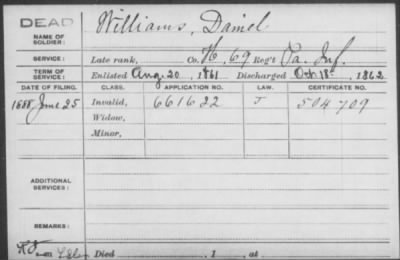 DEAD
NAME OF SOLDIER: Williams, Daniel
SERVICE: Late rank, Co. H, 69 Reg't Pa. Inf.
TERM OF SERVICE: Enlisted Aug. 20, 1861 Discharged Oct 18, 1862
DATE OF FILING. CLASS. APPLICATION NO. LAW. CERTIFICATE NO.
1888 June 25 Invalid, 661622 J 504709
Widow,
Minor,
ADDITIONAL SERVICES:
REMARKS:
Died , 1 , at